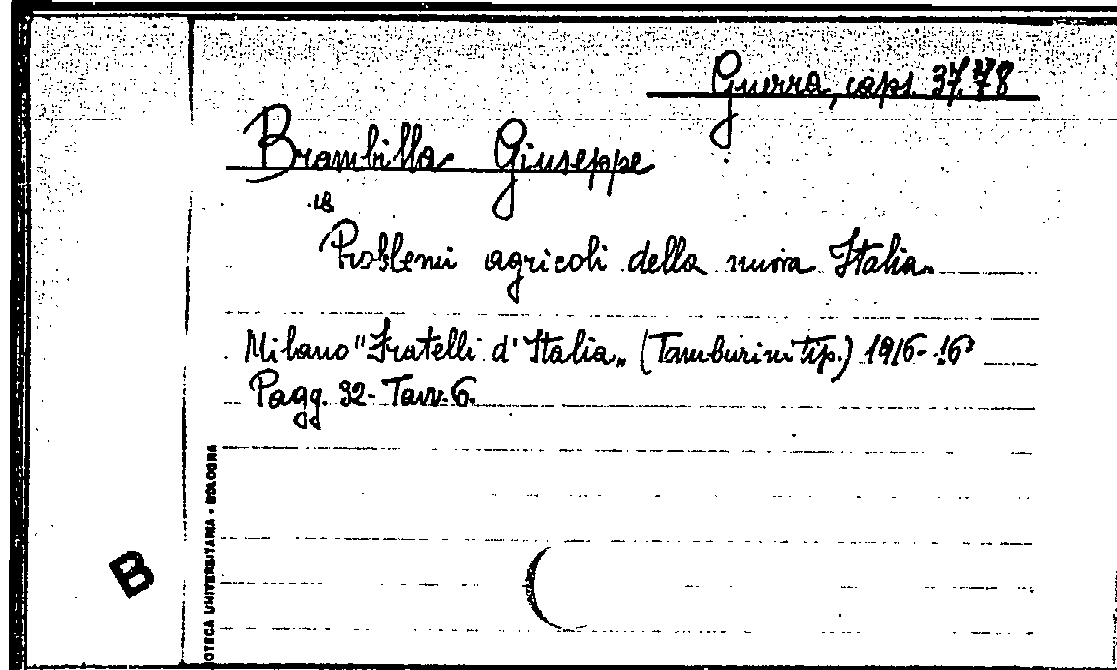 Guerra, caps. 37.78
Brambilla Giuseppe
Problemi agricoli della nuova Italia.
Milano "Fratelli d'Italia„ (Tamburini tip.) 1916-16°
Pagg. 32- Tavv. 6.
OTECA UNIVERSITARIA - BOLOGNA
B